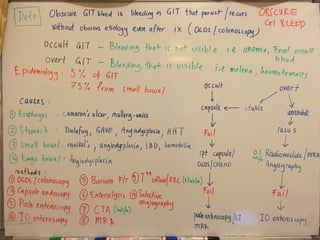 Defn Obscure GIT bleed is bleeding in GIT that persist / recurs
without obvious etiology even after IX (OGDS / colonoscopy)
OBSCURE
GI BLEED
Occult GIT - Bleeding that is not visible i.e anemia, Fecal occult
blood
overt GIT - Bleeding that is visible i.e melena, heamatemesis
Epidemiology: 5% of GIT
75% from small bowel
causes:
① Esophagus : cameron's ulcer, mallory-weiss
② Stomach : Dieulafoy, GAVE, Angiodysplasia, HHT
③ Small bowel : meckel's, angiodysplasia, IBD, hemobilia
④ Large bowel : Angiodysplasia
methods:
① OGDS / colonoscopy
② Capsule endoscopy
③ Push enteroscopy
④ IO enteroscopy
⑤ Barium F/T
⑥ Enteroclysis
⑦ CTA
⑧ MRA
⑨ T99 colloid/RBC
⑩ Selective
angiography
occult
overt
capsule
stable
unstable
Fail
resus
rpt capsule/
OGDS/colono
Radionuclide / MRA
Angiography
Fail
Fail
push enteroscopy / CT
MRA
IO enteroscopy